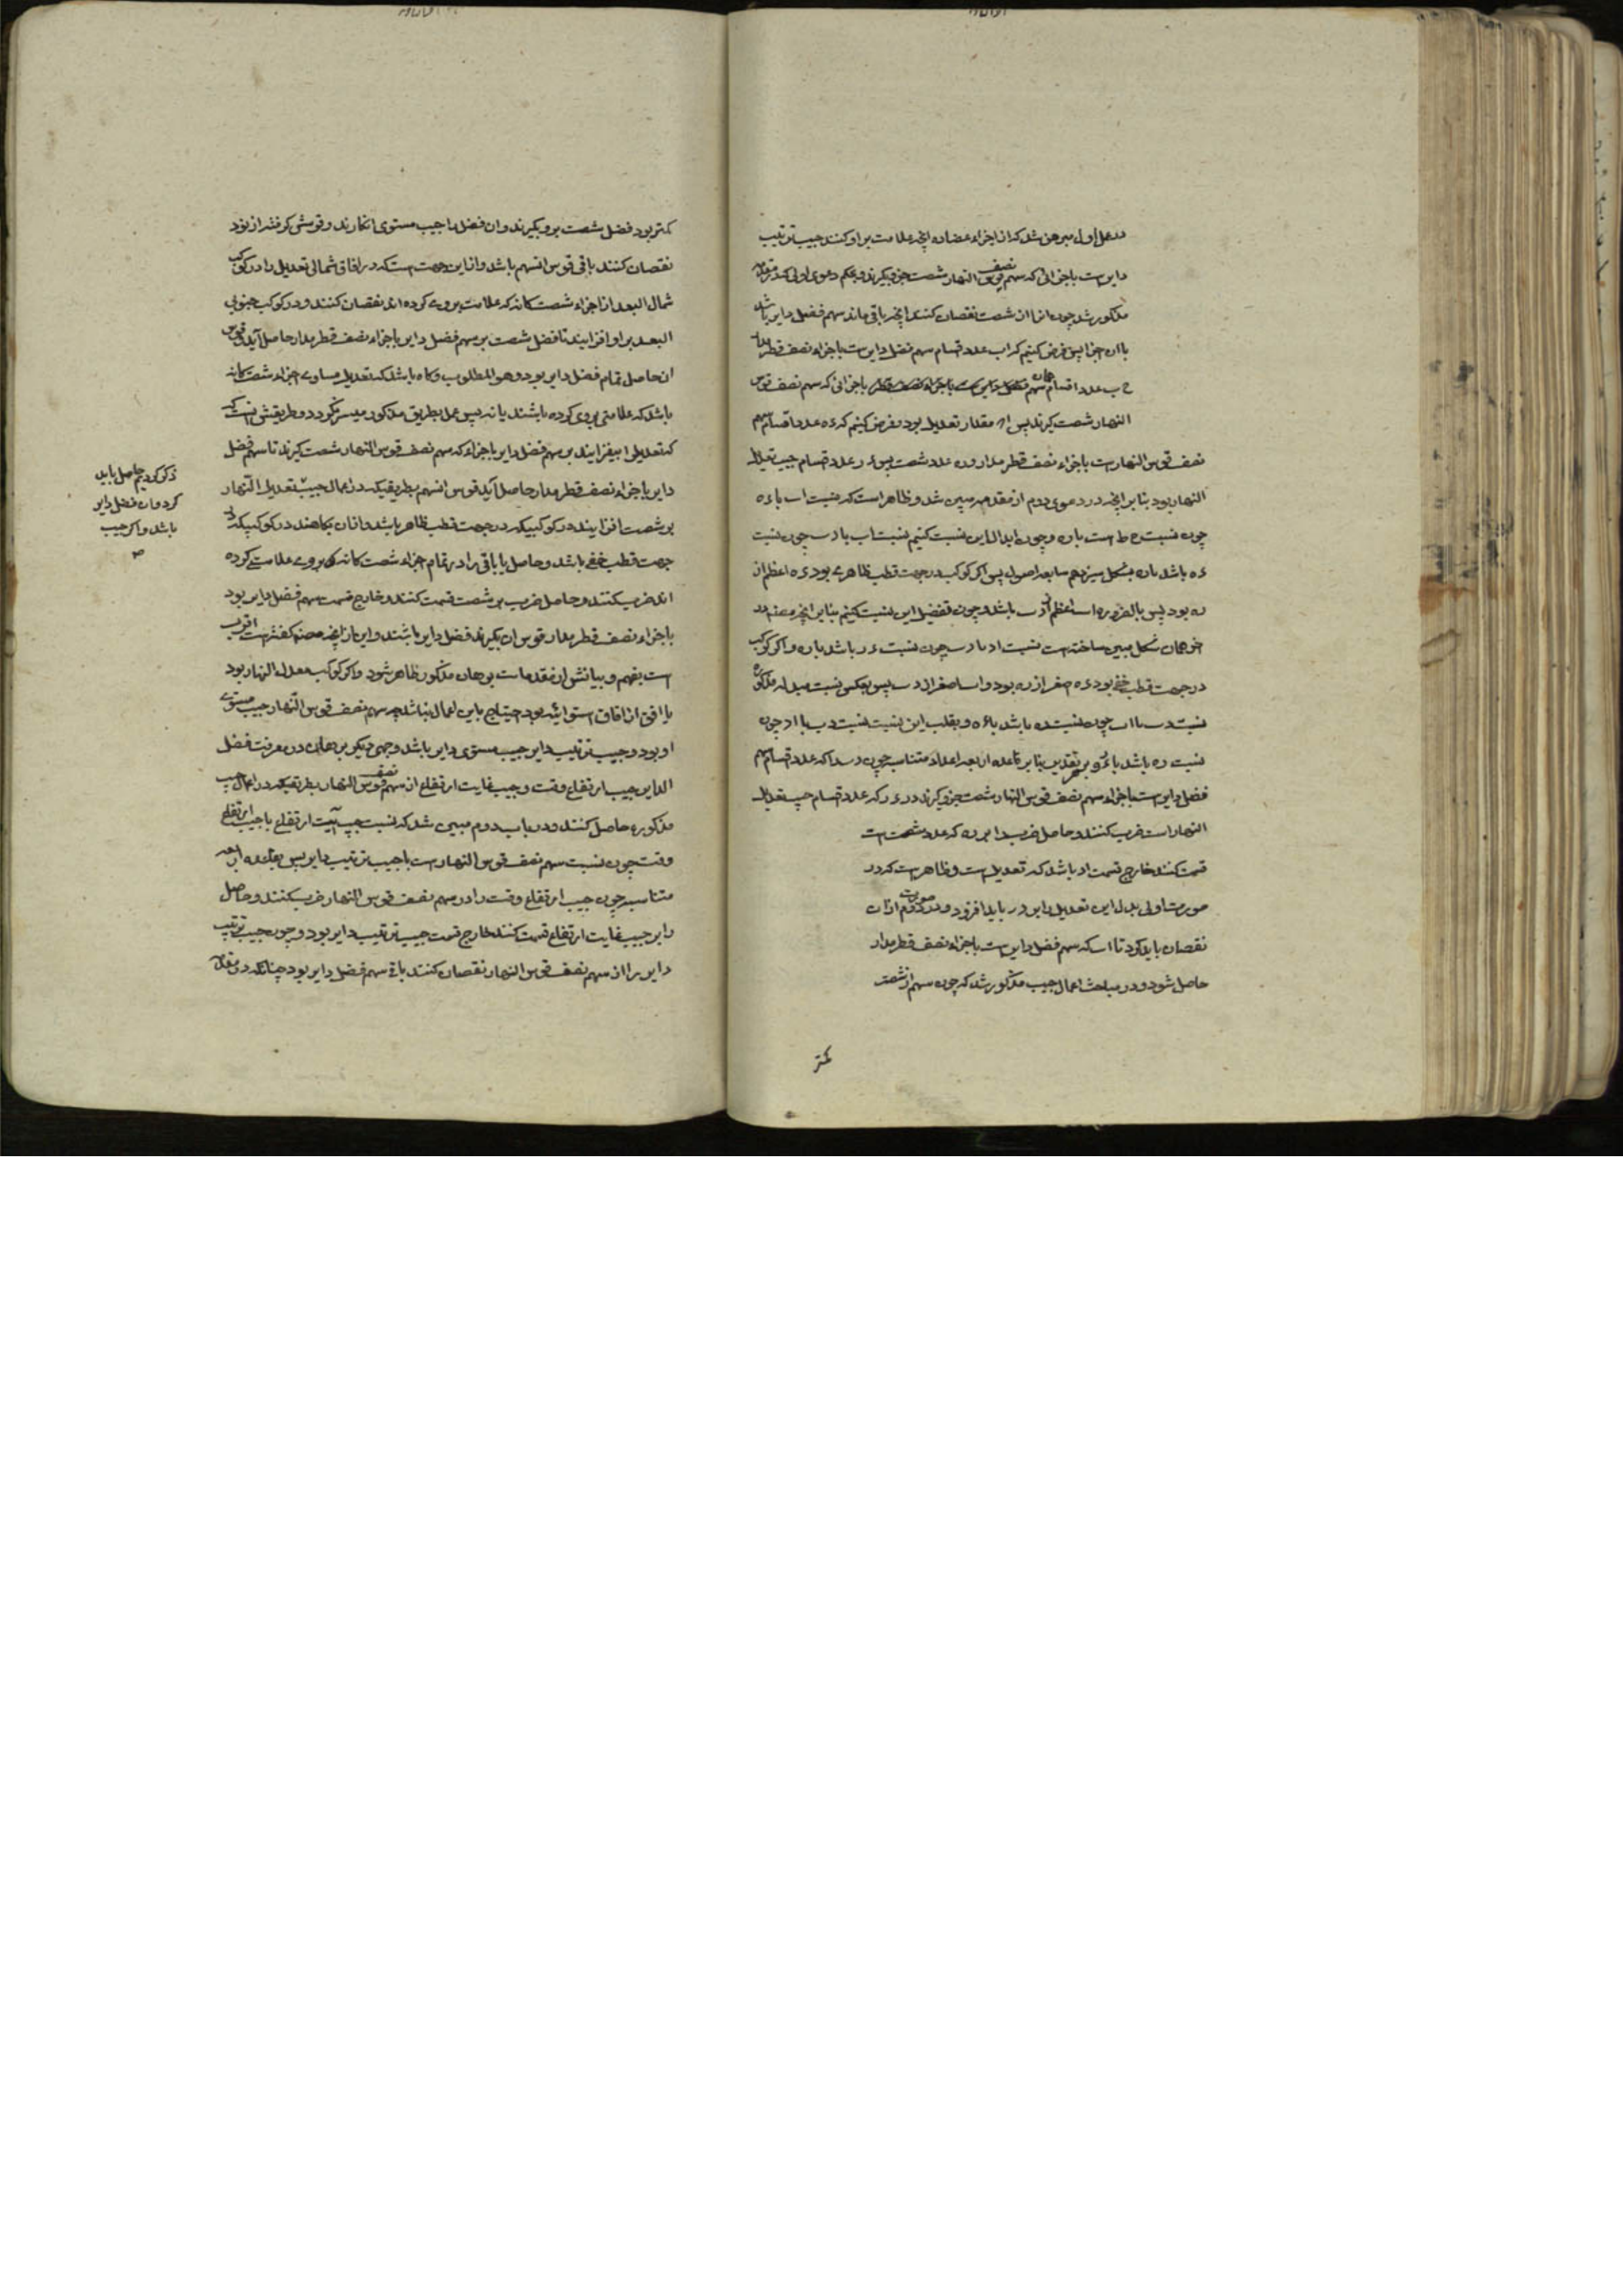 در عمل اول مبرهن شد که از اجزاء عضاده آنچه علامت بر او کنند جیب ترتیب
دایرست باجزائی که سهم نصف قوس النهار شصت جزو گیرند و بحکم دعوی اولی که در مقدمه
مذکور شد چون انرا از شصت نقصان کنند آنچه باقی ماند سهم فضل دایر باشد
بان اجزا پس فرض کنیم که اب عدد اقسام سهم فضل دایرست باجزاء نصف قطر مدار
ح ب عدد اقسام همان سهم باجزائی که سهم نصف قوس
النهار شصت گیرند پس اح مقدار تعدیل بود و فرض کنیم که ءه عدد اقسام سهم
نصف قوس النهارست باجزاء نصف قطر مدار و ره عدد شصت پس ءر عدد اقسام جیب تعدیل
النهار بود بنا بر آنچه در دعوی دوم از مقدمه مبین شد و ظاهر است که نسبت اب با ءه
چون نسبت ح ط است باره و چون ابدال این نسبت کنیم نسبت اب با د ب چون نسبت
ءه باشد باره بشکل سیزدهم سابعه اصول پس اگر کوکب در جهت قطب ظاهر بود ءه اعظم از
ره بود پس بالضروره اب اعظم از د ب باشد و چون تفضیل این نسبت کنیم بنا بر آنچه مصنف در
اخر همان شکل مبین ساخته است نسبت اد با د ب چون نسبت ءر باشد باره و اگر کوکب
در جهت قطب خفی بود ءه اصغر از ره بود و اب اصغر از د ب پس بعکس نسبت مبدله مذکوره
نسبت د ب با اب چون نسبت ره باشد با ءه و بقلب این نسبت نسبت د ب با اد چون
نسبت ره باشد با ءر و بر هر تقدیر بنا بر قاعده اربعه اعداد متناسبه چون د ب را که عدد اقسام سهم
فضل دایرست باجزاء سهم نصف قوس النهار شصت جزو گیرند در ءر که عدد اقسام جیب تعدیل
النهار است ضرب کنند و حاصل ضرب را بر ره که عدد شصت است
قسمت کنند خارج قسمت اد باشد که تعدیل است و ظاهر است که در
صورت اولی بدل این تعدیل را بر د ب باید افزود و در صورت دوم از ان
نقصان باید کرد تا اب که سهم فضل دایرست باجزاء نصف قطر مدار
حاصل شود و در مباحث اعمال جیب مذکور شد که چون سهم از شصت
کمتر
کمتر بود فضل شصت برو بگیرند و ان فضل را جیب مستوی انگارند و قوسش گرفته از نود
نقصان کنند باقی قوس انسهم باشد و از این جهت است که در افاق شمالی تعدیل را در کوکب
شمالی البعد از اجزاء شصت گانه که علامت بروی کرده اند نقصان کنند و در کوکب جنوبی
البعد بر او افزایند تا فضل شصت بر سهم فضل دایر باجزاء نصف قطر مدار حاصل آید و قوس
ان حاصل تمام فضل دایر بود و هو المطلوب و گاه باشد که تعدیل مساوی اجزاء شصت گانه
باشد که علامتی بروی کرده باشند یا نه پس عمل بطریق مذکور میسر نگردد و طریقش انست که
که تعدیل را بیفزایند بر سهم فضل دایر باجزاء که سهم نصف قوس النهار شصت گیرند تا سهم فضل
دایر باجزاء نصف قطر مدار حاصل آید قوس انسهم بطریقیکه در اعمال جیب تعدیل النهار
بر شصت افزایند در کوکبیکه در جهت قطب ظاهر باشد و از ان بکاهند در کوکبیکه در
جهت قطب خفی باشد و حاصل یا باقی را در تمام اجزاء شصت گانه که بروی علامت کرده
اند ضرب کنند و حاصل ضرب بر شصت قسمت کنند و خارج قسمت سهم فضل دایر بود
باجزاء نصف قطر مدار قوس ان بگیرند فضل دایر باشد و این از آنچه مصنف گفته است اقرب
است بفهم و بیانش از مقدمات برهان مذکور ظاهر شود و اگر کوکب معدل النهار بود
یا افق از افاق استوائیه بود احتیاج باین اعمال نباشد چه سهم نصف قوس النهار جیب مستوی
او بود و جیب ترتیب دایر جیب مستوی دایر باشد وجهی دیگر برهانه در معرفت فضل
الدایر جیب ارتفاع وقت و جیب غایت ارتفاع از سهم نصف قوس النهار بطریقیکه در اعمال جیب
مذکوره حاصل کنند و در باب دوم مبین شد که نسبت جیب غایت ارتفاع با جیب ارتفاع
وقت چون نسبت سهم نصف قوس النهارست با جیب ترتیب دایر پس بقاعده اربعه
متناسبه چون جیب ارتفاع وقت را در سهم نصف قوس النهار ضرب کنند و حاصل
را بر جیب غایت ارتفاع قسمت کنند خارج قسمت جیب ترتیب دایر بود و چون جیب ترتیب
دایر را از سهم نصف قوس النهار نقصان کنند باقی سهم فضل دایر بود چنانکه در مقدمه
ذکر کردیم حاصل باید
کرد و ان فضل دایر
باشد و اگر جیب